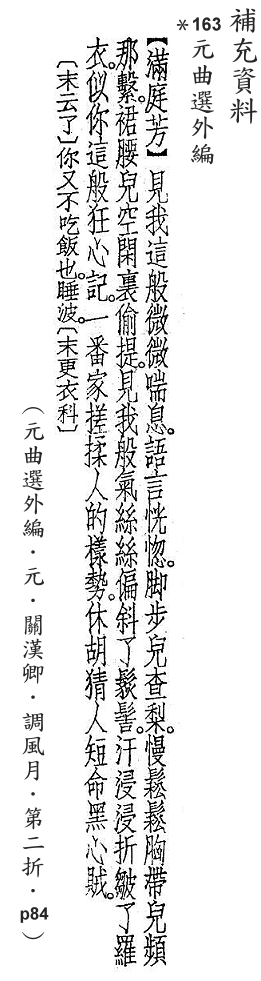 補充資料
*163
元曲選外編
【滿庭芳】見我這般微微喘息。語言恍惚。脚步兒查梨。慢鬆鬆胸帶兒頻
那繫裙腰兒空閑裏偷提。見我般氣絲絲偏斜了鬏髻。汗浸浸折皺了羅
衣。似你這般狂心記。一番家搓揉人的樣勢。休胡猜人短命黑心賊。
〔末云了〕你又不吃飯也。睡波。〔末更衣科〕
(元曲選外編・元・關漢卿・調風月・第二折・p84)